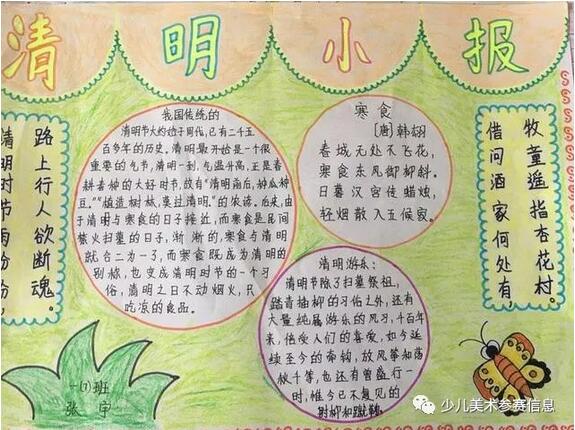 清明小报
路上行人欲断魂。
清明时节雨纷纷,
我国传统的
清明节大约始于周代,已有二千五
百多年的历史。清明最开始是一个很
重要的节气,清明一到,气温升高,正是春
耕春种的大好时节,故有“清明前后,种瓜种
豆。”“植造树林,莫过清明。”的农谚。后来,由
于清明与寒食的日子接近,而寒食是民间
禁火扫墓的日子,渐渐的,寒食与清明
就合二为一了,而寒食既成为清明的
别称,也变成清明时节的一个习
俗,清明之日不动烟火,只
吃凉的食品。
寒食
[唐]韩翃
春城无处不飞花,
寒食东风御柳斜。
日暮汉宫传蜡烛,
轻烟散入五候家。
清明游乐:
清明节除了扫墓祭祖,
踏青插柳的习俗之外,还有
大量纯属游乐的风习,千百年
来,倍受人们的喜爱,如今延
续至今的奇钩,放风筝和荡
秋千等,也还有曾盛行一
时,惟今已不复见的
射柳和蹴鞠。
牧童遥指杏花村。
借问酒家何处有,
一(1)班
张宇
少儿美术参赛信息